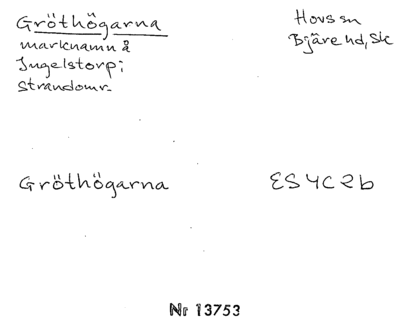 Gröthögarna
Hovs sn
marknamn å
Bjäre hd, Sk
Ingelstorp;
Strandomr.
Gröthögarna
ES4C2b
Nr 13753